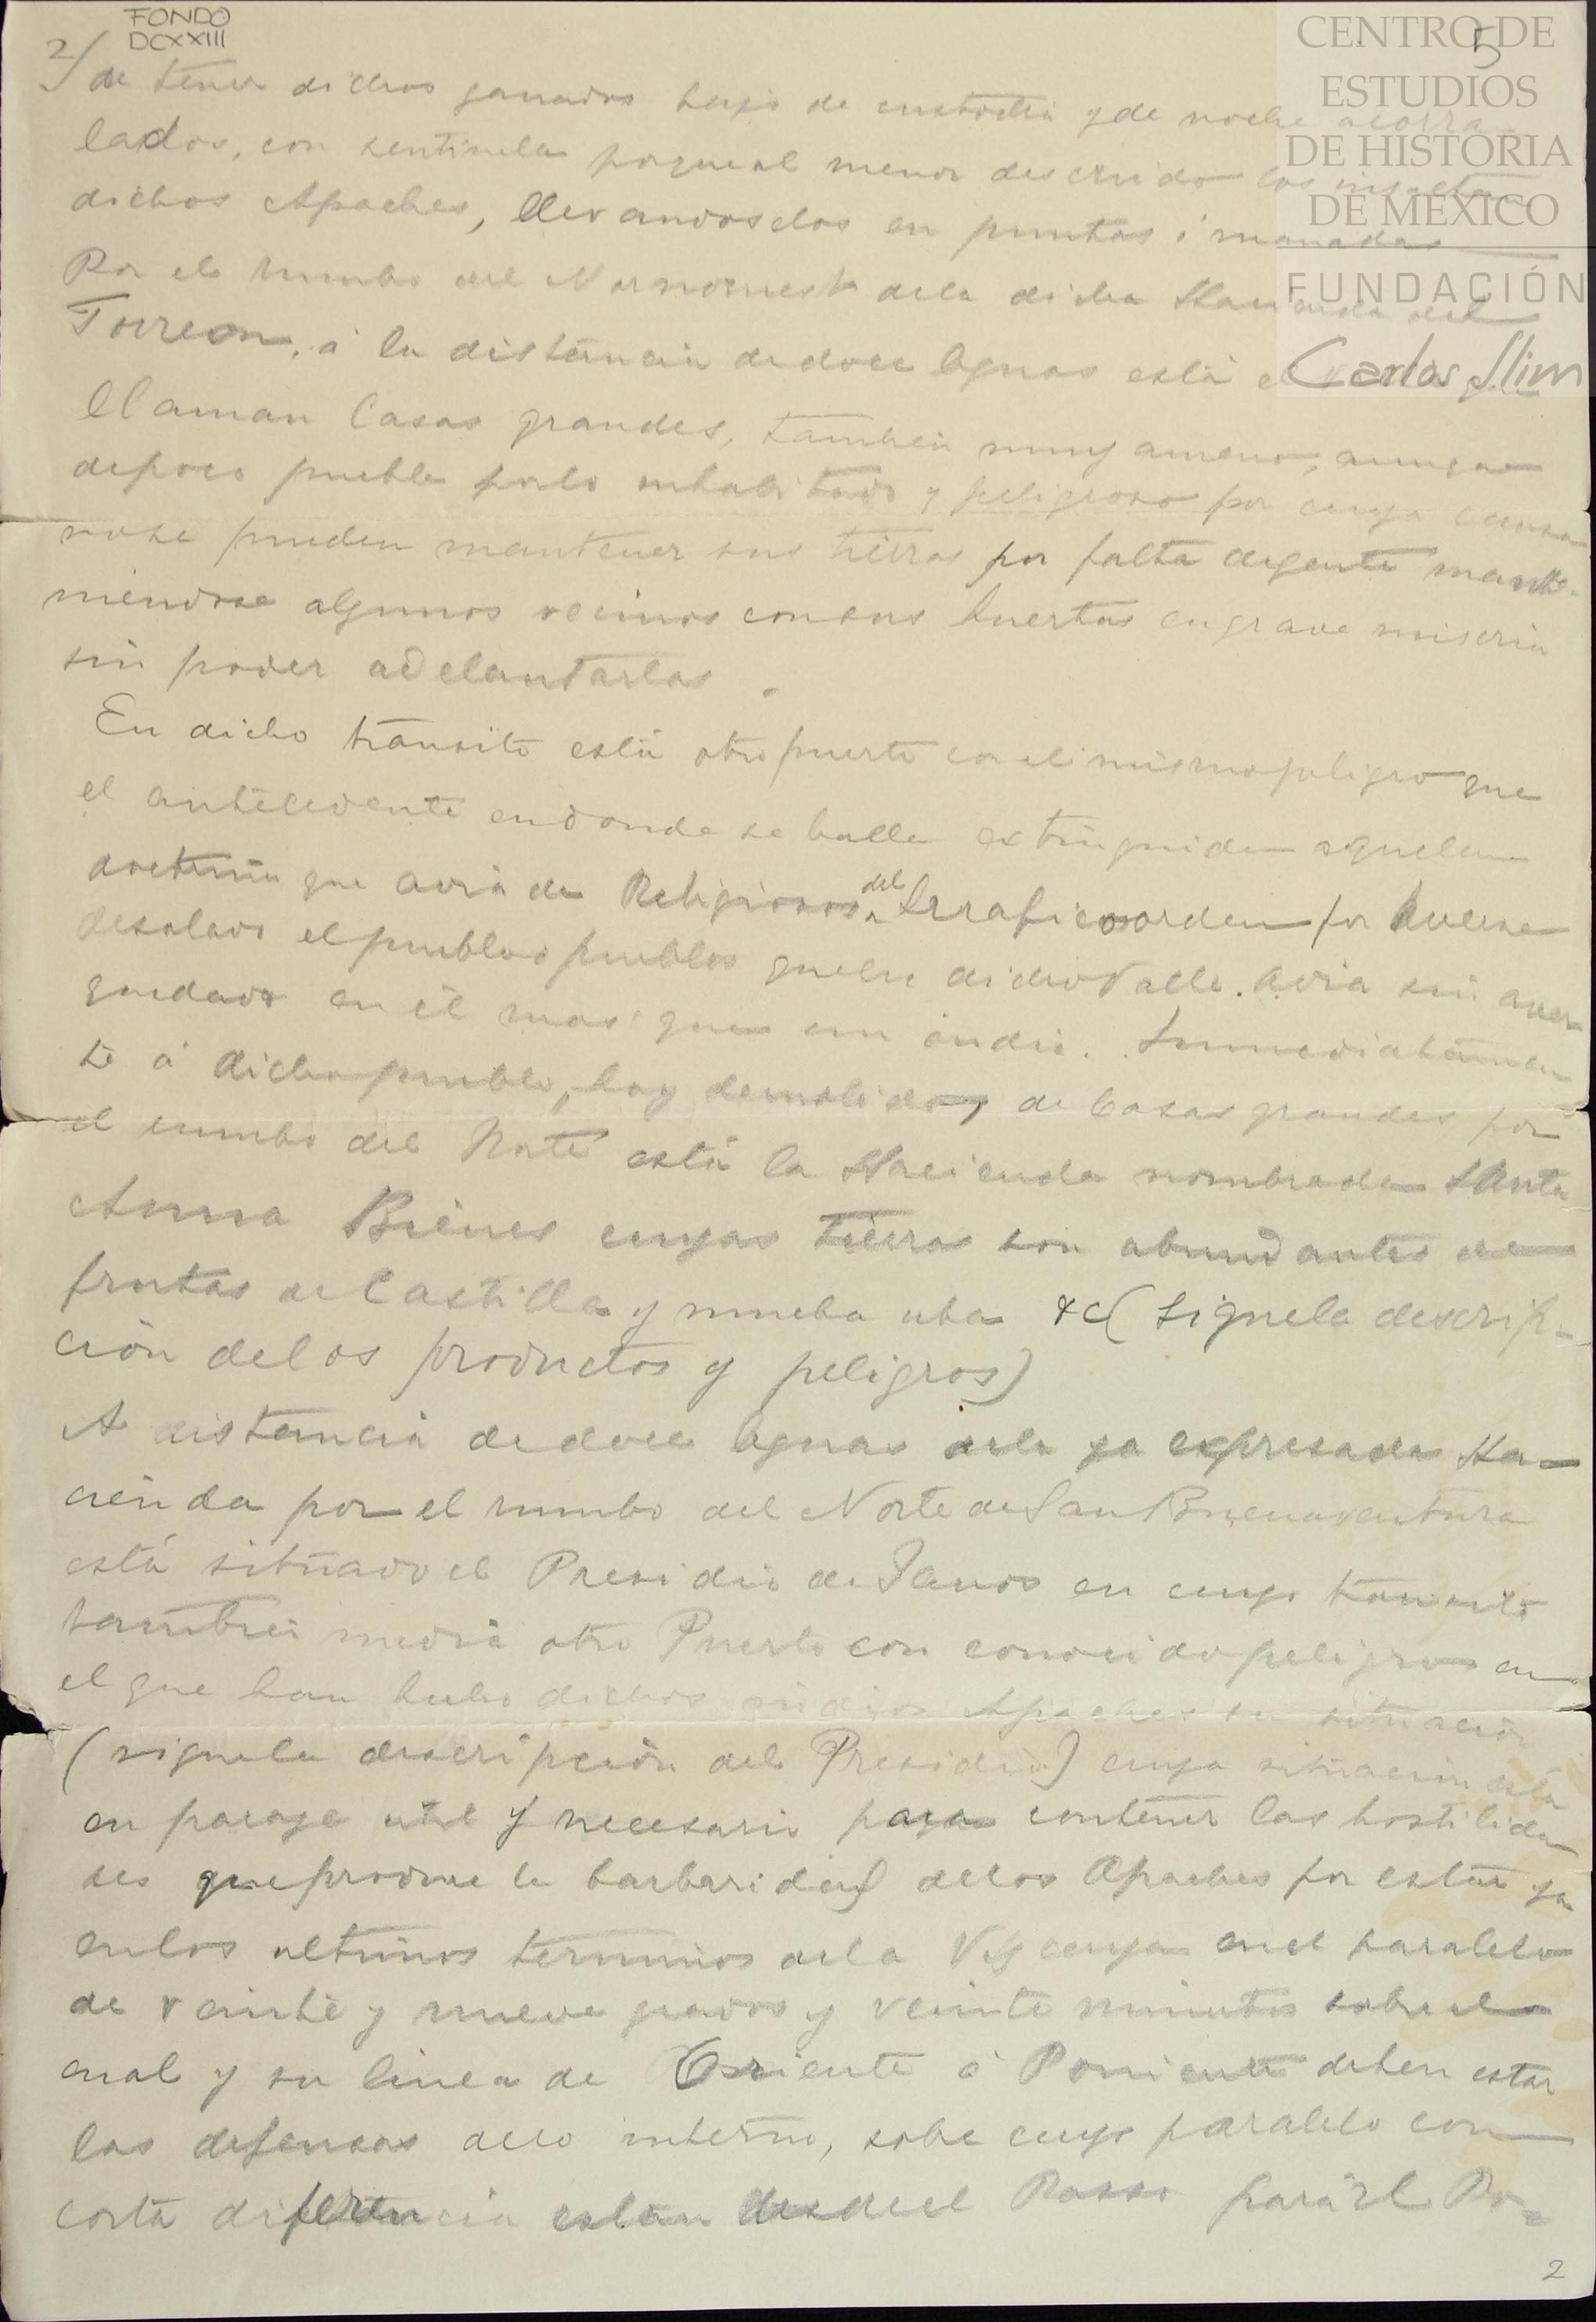 FONDO
DCXXIII
CENTRO DE
ESTUDIOS
DE HISTORIA
DE MÉXICO
FUNDACIÓN
Carlos Slim
5
2/ de tener dichos ganados bajo de custodia y de noche acorra-
lados, con sentinela porque al menor descuido los insultan
dichos Apaches, llevandoselos en puntas i manadas
Por el rumbo del Nornoruest dela dicha Hacienda del
Torreon, á la distancia de doce leguas está el que
llaman Casas grandes, tambien muy ameno, aunque
depoco pueble porlo inhabitado y peligroso por cuya causa
nose pueden mantener sus tierras por falta degente mante-
niendose algunos vecinos consus huertas en grave miseria
sin poder adelantarlas.
En dicho transito está otro puerto con el mismo peligro que
el antecedente endonde se halla extinguida aquella
doctrina que avia de Religiosos del Serafico orden por haverse
desolado el pueblo o pueblos que en dicho Valle. avia sin aver
quedado en él mas que un indio. Inmediatamen
te á dicho pueblo, hoy demolido, de Casas grandes por
el rumbo del Norte está la Hacienda nombrada Santa
Anna Bienes cuyas tierras son abundantes de
frutas de Castilla y mucha uba &c (Sigue la descrip-
ción delos productos y peligros)
A distancia de doce leguas dela ya expresada Ha-
cienda por el rumbo del Norte de San Buenaventura
está situado el Presidio de Janos en cuyo transito
tambien media otro Puerto con conocido peligro en
el que han hecho dichos indios Apaches su situación
(sigue la descripción del Presidio) cuya situacion está
en parage util y necesario para contener las hostilida
des que produce la barbaridad delos Apaches por estar ya
enlos ultimos terminos dela Viscaya en el paralelo
de veinte y nueve grados y veinte minutos sobre el
cual y su linea de Oriente á Poniente deben estar
las defensas delo interno, sobre cuyo paralelo con
corta diferencia estan desde el Passo para el Po-
2